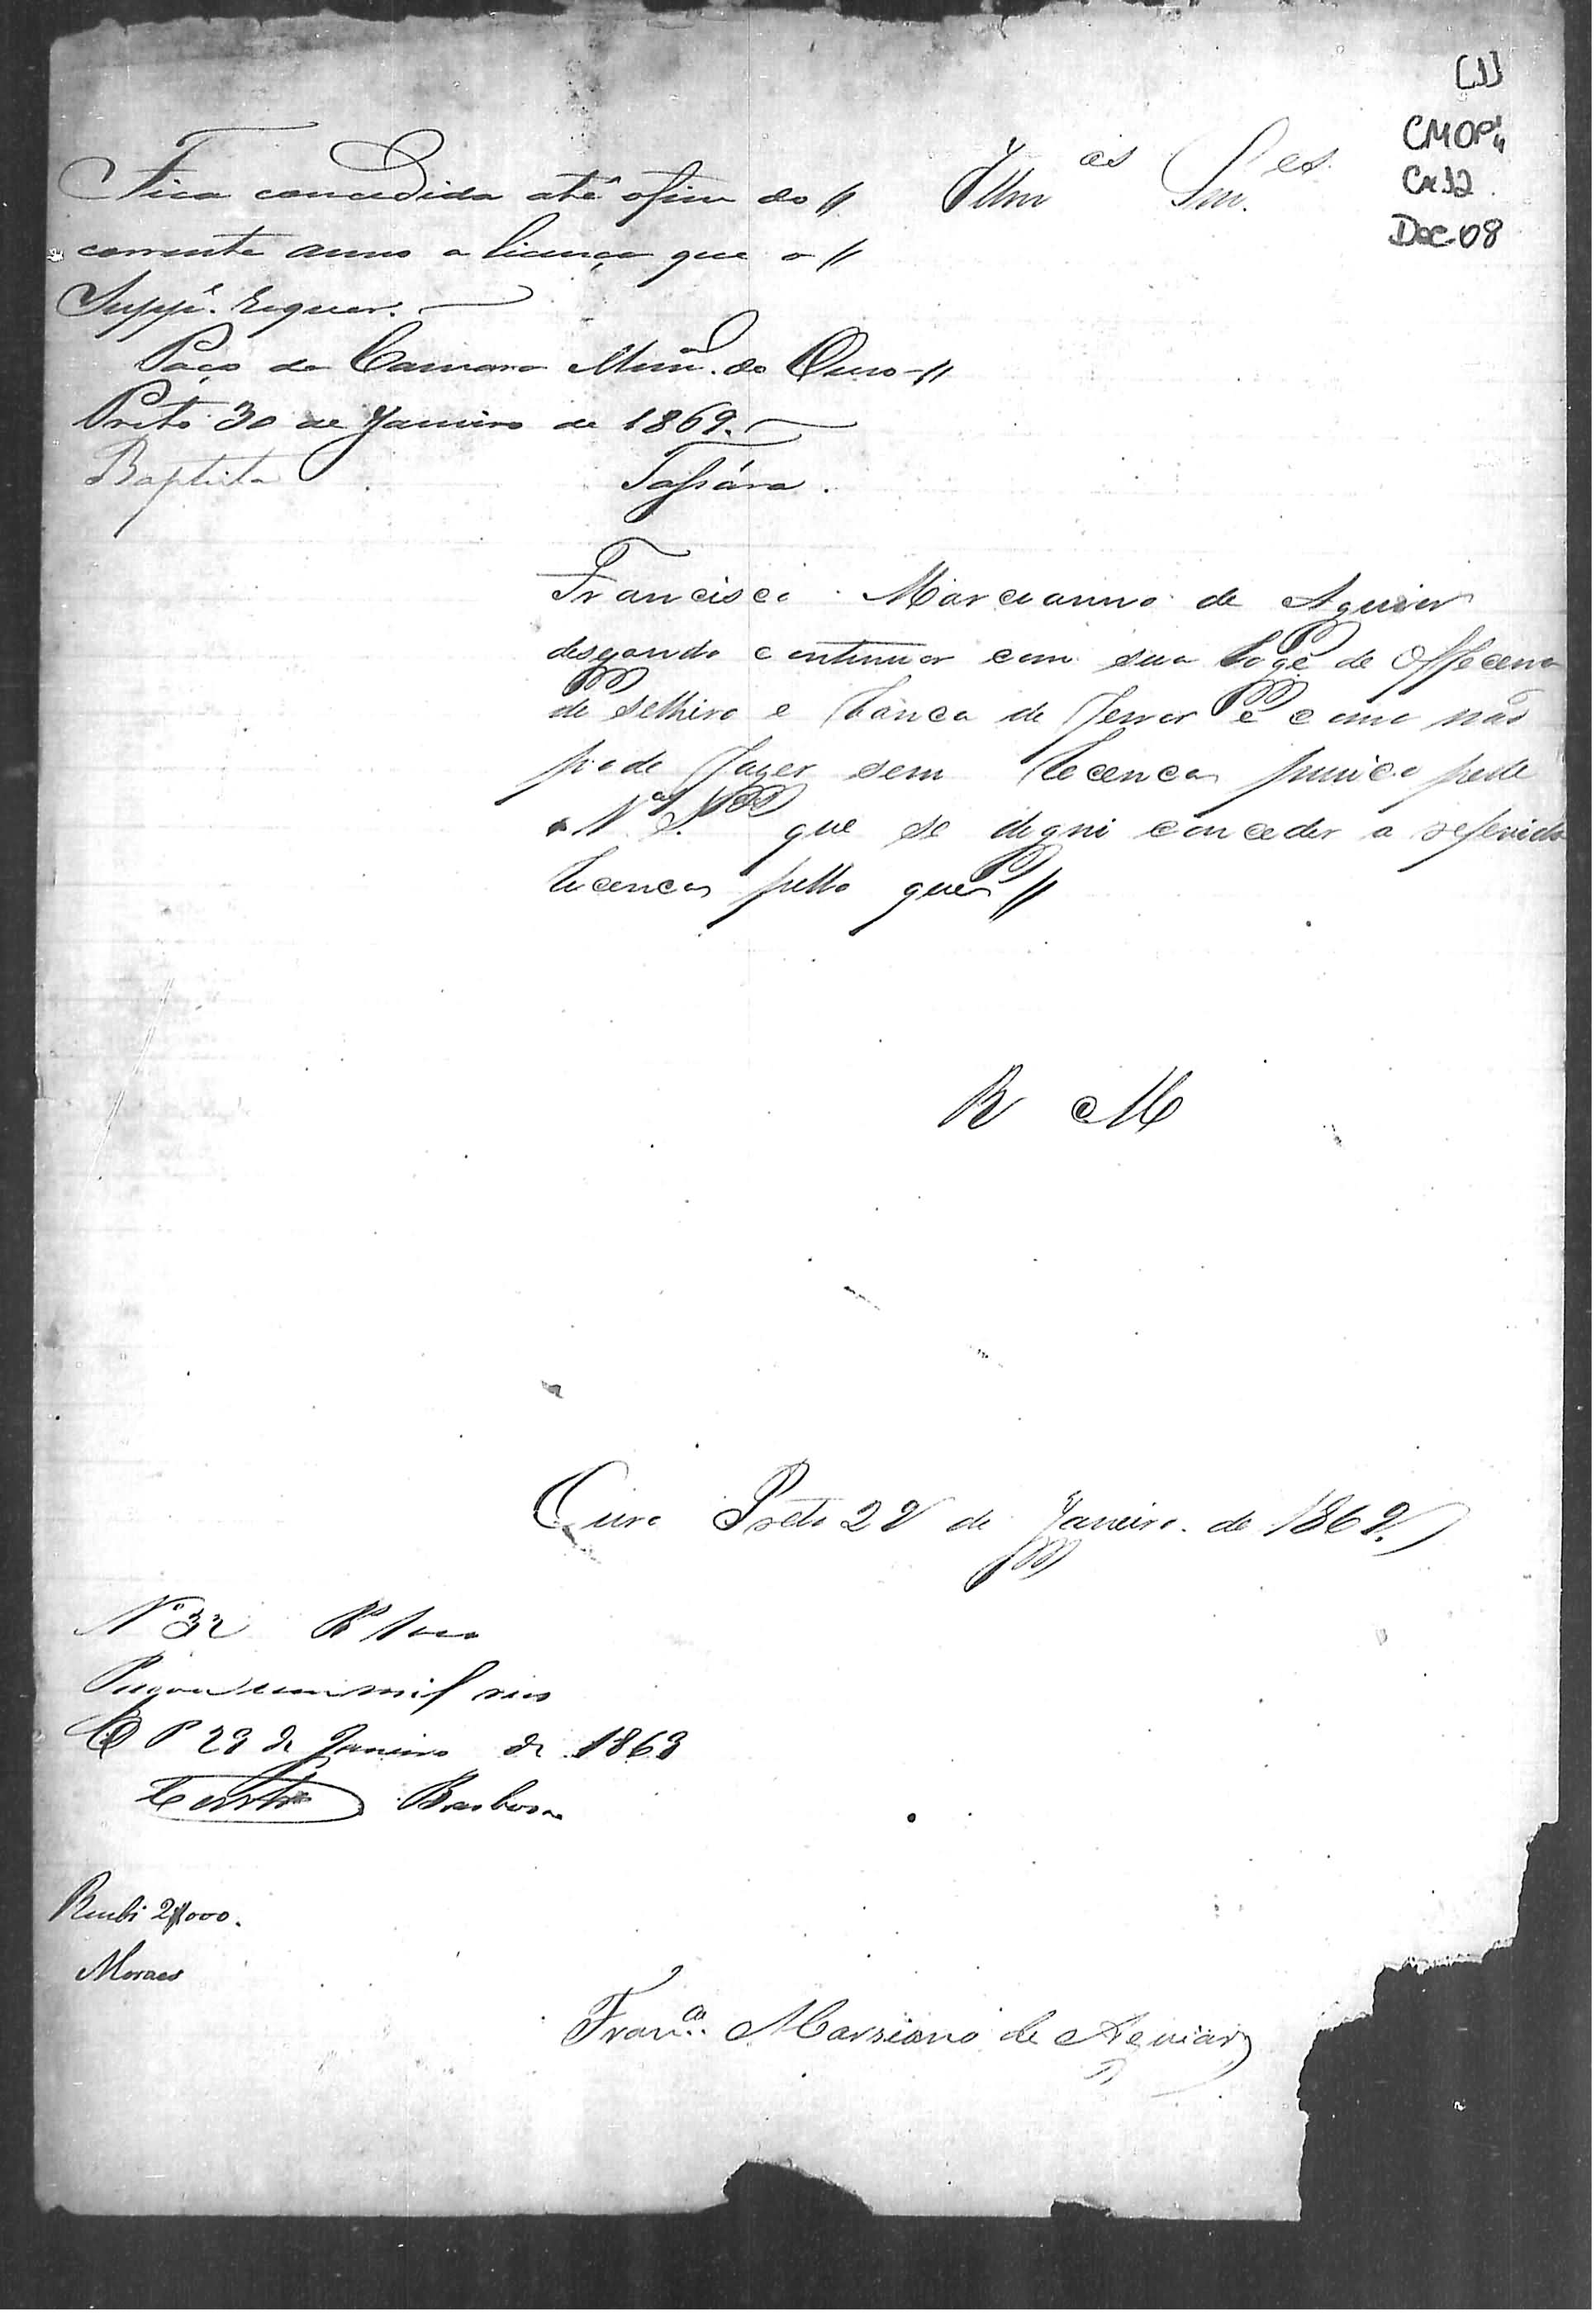 [1]
CMOP
Cx 12
Doc-08
Illm.os Snr.es
Fica concedida até o fim do //
corrente anno a licença que o //
Supp.e requer.
Paço da Camara Mun.al do Ouro- //
Preto 30 de Janeiro de 1869.
Baptista Tassára.
Francisco Marcianno de Aguiar
desejando continuar com sua loge de Offecena
de Selheiro e banca de ferrar e como não
pode fazer sem lecenca pede
a V.as S.as que se digni conceder a referida
lecenca pello que //
R M
Ouro Preto 29 de Janeiro de 1869.
N.o 32 R.s
Pagou um mil reis
O P 29 de Janeiro de 1869
Barbosa
Recebi 2$000.
Moraes
Fran.co Marsiano de Aguiar